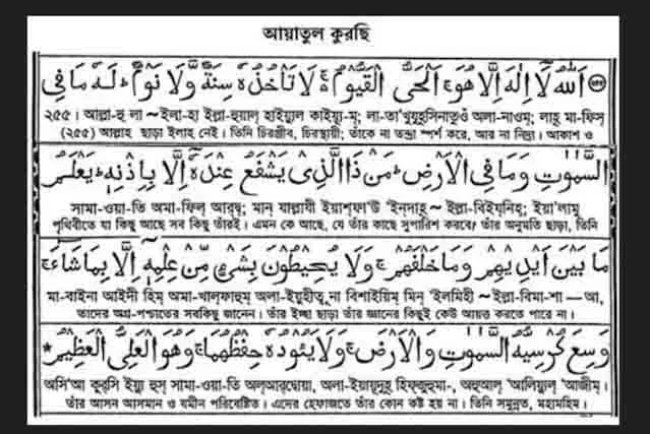 আয়াতুল কুরছি
اَللّٰهُ لَآ اِلٰهَ اِلَّا هُوَ ۚ اَلْحَىُّ الْقَيُّوْمُ ۚ لَا تَاْخُذُهٗ سِنَةٌ وَّلَا نَوْمٌ ؕ لَهٗ مَا فِى
২৫৫। আল্লা-হু লা ~ ইলা-হা ইল্লা-হুয়াল্ হাইয়্যুল কাইয়্যু-ম্; লা-তা'খুযুহূসিনাতুওঁ অলা-নাওম্; লাহূ মা-ফিস্
(২৫৫) আল্লাহ ছাড়া ইলাহ নেই। তিনি চিরঞ্জীব, চিরস্থায়ী; তাঁকে না তন্দ্রা স্পর্শ করে, আর না নিদ্রা। আকাশ ও
السَّمٰوٰتِ وَمَا فِى الْاَرْضِ ؕ مَنْ ذَا الَّذِىْ يَشْفَعُ عِنْدَهٗٓ اِلَّا بِاِذْنِهٖ ؕ يَعْلَمُ
সামা-ওয়া-তি অমা-ফিল্ আরদ্ব্; মান্ যাল্লাযী ইয়াশ্ফা'উ 'ইন্দাহূ ~ ইল্লা-বিইয্নিহ্; ইয়া'লামু
পৃথিবীতে যা কিছু আছে সব কিছু তাঁরই। এমন কে আছে, যে তাঁর কাছে সুপারিশ করবে? তাঁর অনুমতি ছাড়া, তিনি
مَا بَيْنَ اَيْدِيْهِمْ وَمَا خَلْفَهُمْ ۚ وَلَا يُحِيْطُوْنَ بِشَىْءٍ مِّنْ عِلْمِهٖٓ اِلَّا بِمَا شَآءَ ۚ
মা-বাইনা আইদী হিম্ অমা-খাল্ফাহুম্ অলা-ইয়ুহীতূ না বিশাইয়িম্ মিন্ 'ইলমিহী ~ ইল্লা-বিমা-শা — আ,
তাদের অগ্র-পশ্চাতের সবকিছু জানেন। তাঁর ইচ্ছা ছাড়া তাঁর জ্ঞানের কিছুই কেউ আয়ত্ত করতে পারে না।
وَسِعَ كُرْسِيُّهُ السَّمٰوٰتِ وَالْاَرْضَ ۚ وَلَا يَئُوْدُهٗ حِفْظُهُمَا ۚ وَهُوَ الْعَلِىُّ الْعَظِيْمُ *
অসি'আ কুরসি ইয়্যু হুস্ সামা-ওয়া-তি অল্আরদ্বোয়া, অলা-ইয়ায়ূদুহূ হিফ্জুহুমা-, অহুঅল্ 'আলিয়্যুল্ 'আজীম্।
তাঁর আসন আসমান ও যমীন পরিবেষ্টিত। এদের হেফাজতে তাঁর কোন কষ্ট হয় না। তিনি সমুন্নত, মহামহিম।